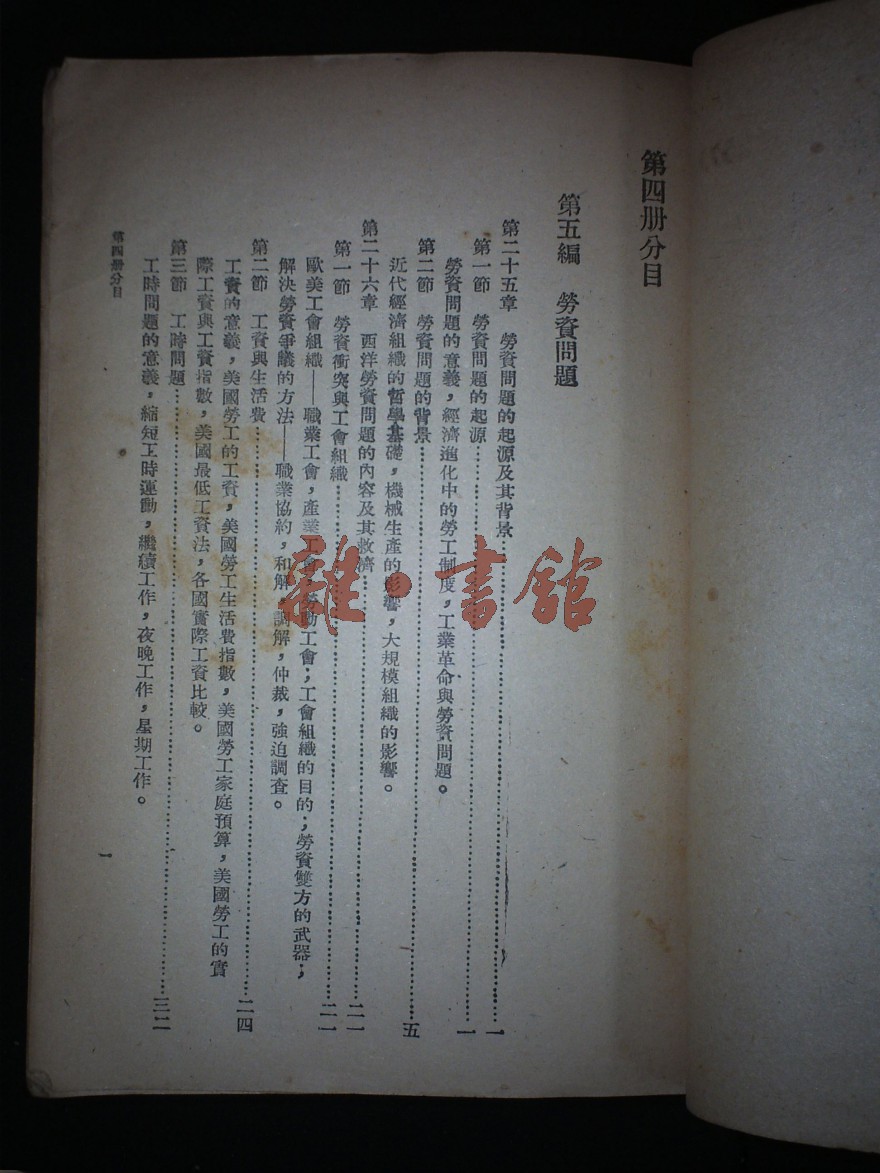 第四册分目
第五編　勞資問題
第二十五章　勞資問題的起源及其背景……一
第一節　勞資問題的起源……一
勞資問題的意義，經濟進化中的勞工制度，工業革命與勞資問題。
第二節　勞資問題的背景……五
近代經濟組織的哲學基礎，機械生產的影響，大規模組織的影響。
第二十六章　西洋勞資問題的內容及其救濟……二一
第一節　勞資衝突與工會組織……二一
歐美工會組織——職業工會，產業工會，勞動工會；工會組織的目的；勞資雙方的武器；
解決勞資爭議的方法——職業協約，和解，調解，仲裁，強迫調查。
第二節　工資與生活費……二四
工資的意義，美國勞工的工資，美國勞工生活費指數，美國勞工家庭預算，美國勞工的實
際工資與工資指數，美國最低工資法，各國實際工資比較。
第三節　工時問題……三二
工時問題的意義，縮短工時運動，繼續工作，夜晚工作，星期工作。
第四册分目
一
雜·書館